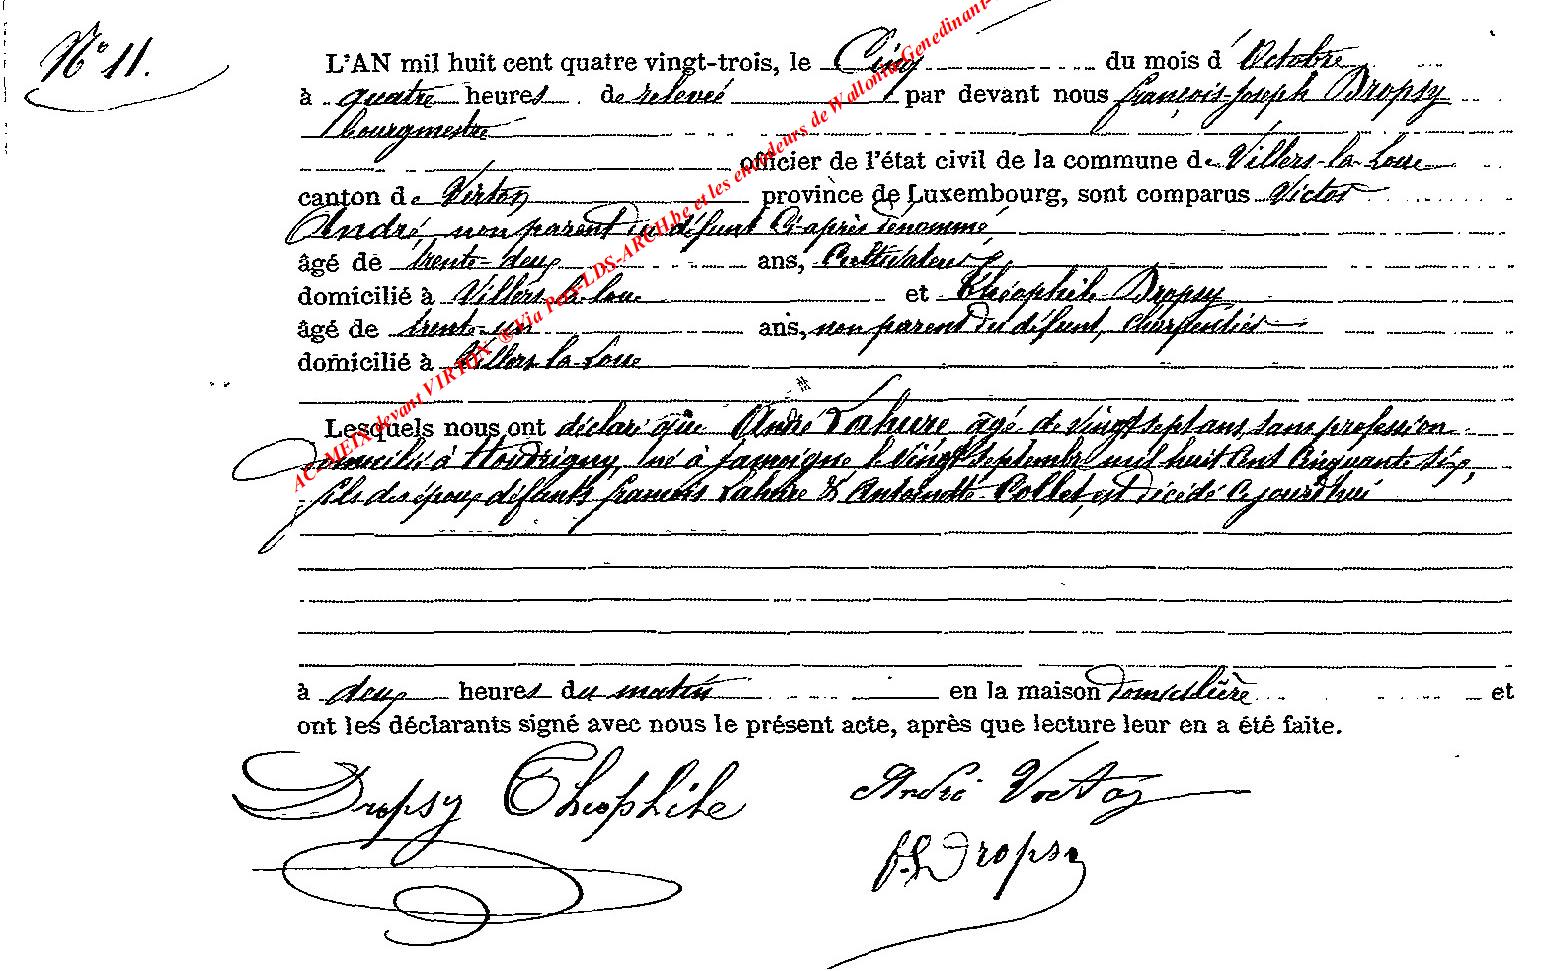 N° 11.
L'AN mil huit cent quatre vingt-trois, le Cinq du mois d'Octobre
à quatre heures de relevée par devant nous françois-joseph Dropsy
bourgmestre
officier de l'état civil de la commune de Villers-la-Loue
canton de Virton province de Luxembourg, sont comparus Victor
André, non parent du défunt Ci-après dénommé,
âgé de trente-deux ans, Cultivateur
domicilié à Villers-la-Loue et Théophile Dropsy
âgé de trente-un ans, non parent du défunt, charpentier
domicilié à Villers-la-Loue
Lesquels nous ont déclaré que André Lahure âgé de vingt sept ans, sans profession
domicilié à Houdrigny, né à Jamoigne le vingt septembre mil huit Cent Cinquante six,
fils des époux défunts francois Lahure & Antoinette Collet, est décédé Cejourd'hui
à deux heures du matin en la maison domicilière et
ont les déclarants signé avec nous le présent acte, après que lecture leur en a été faite.
Dropsy Théophile André Victor
f.J. Dropsy
AC-MEIX devant VIRTON ® Via Pays-LDS-ARCH.be et les encodeurs de Wallonia-Genedinant-